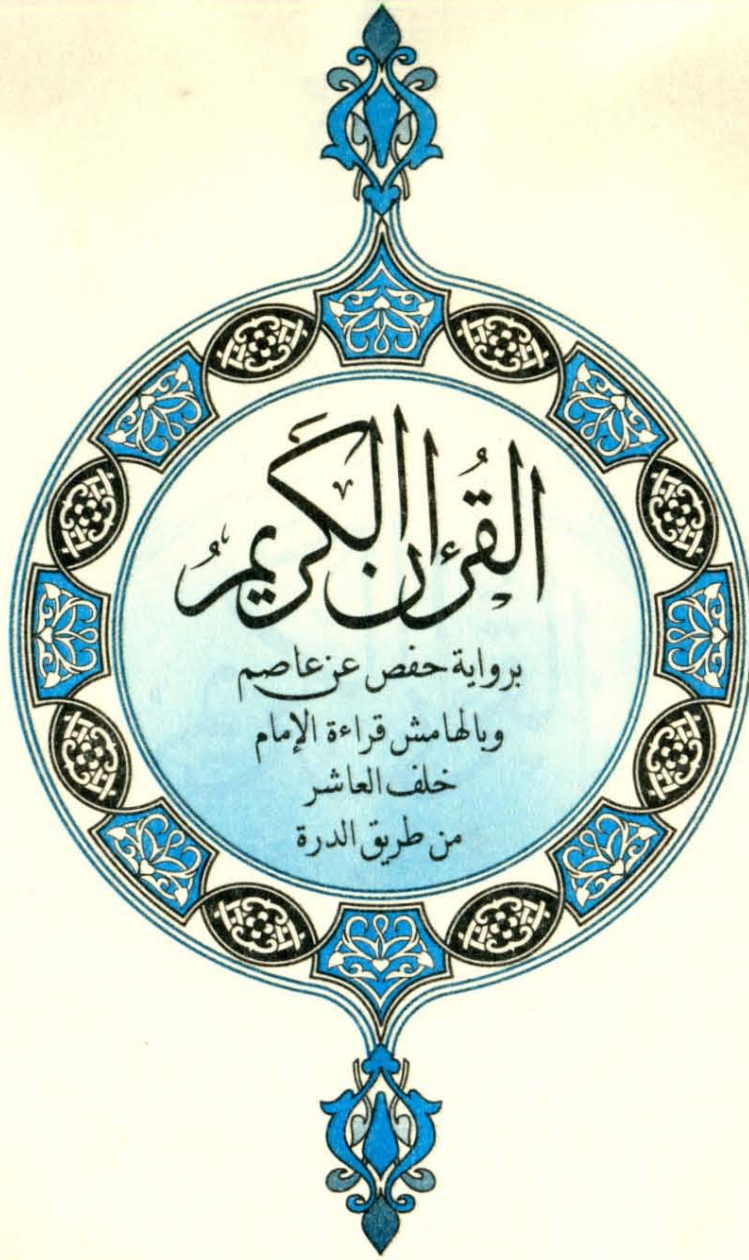 القُرءان الكَريمُ
برواية حفص عن عاصم
وبالهامش قراءة الإمام
خلف العاشر
من طريق الدرة